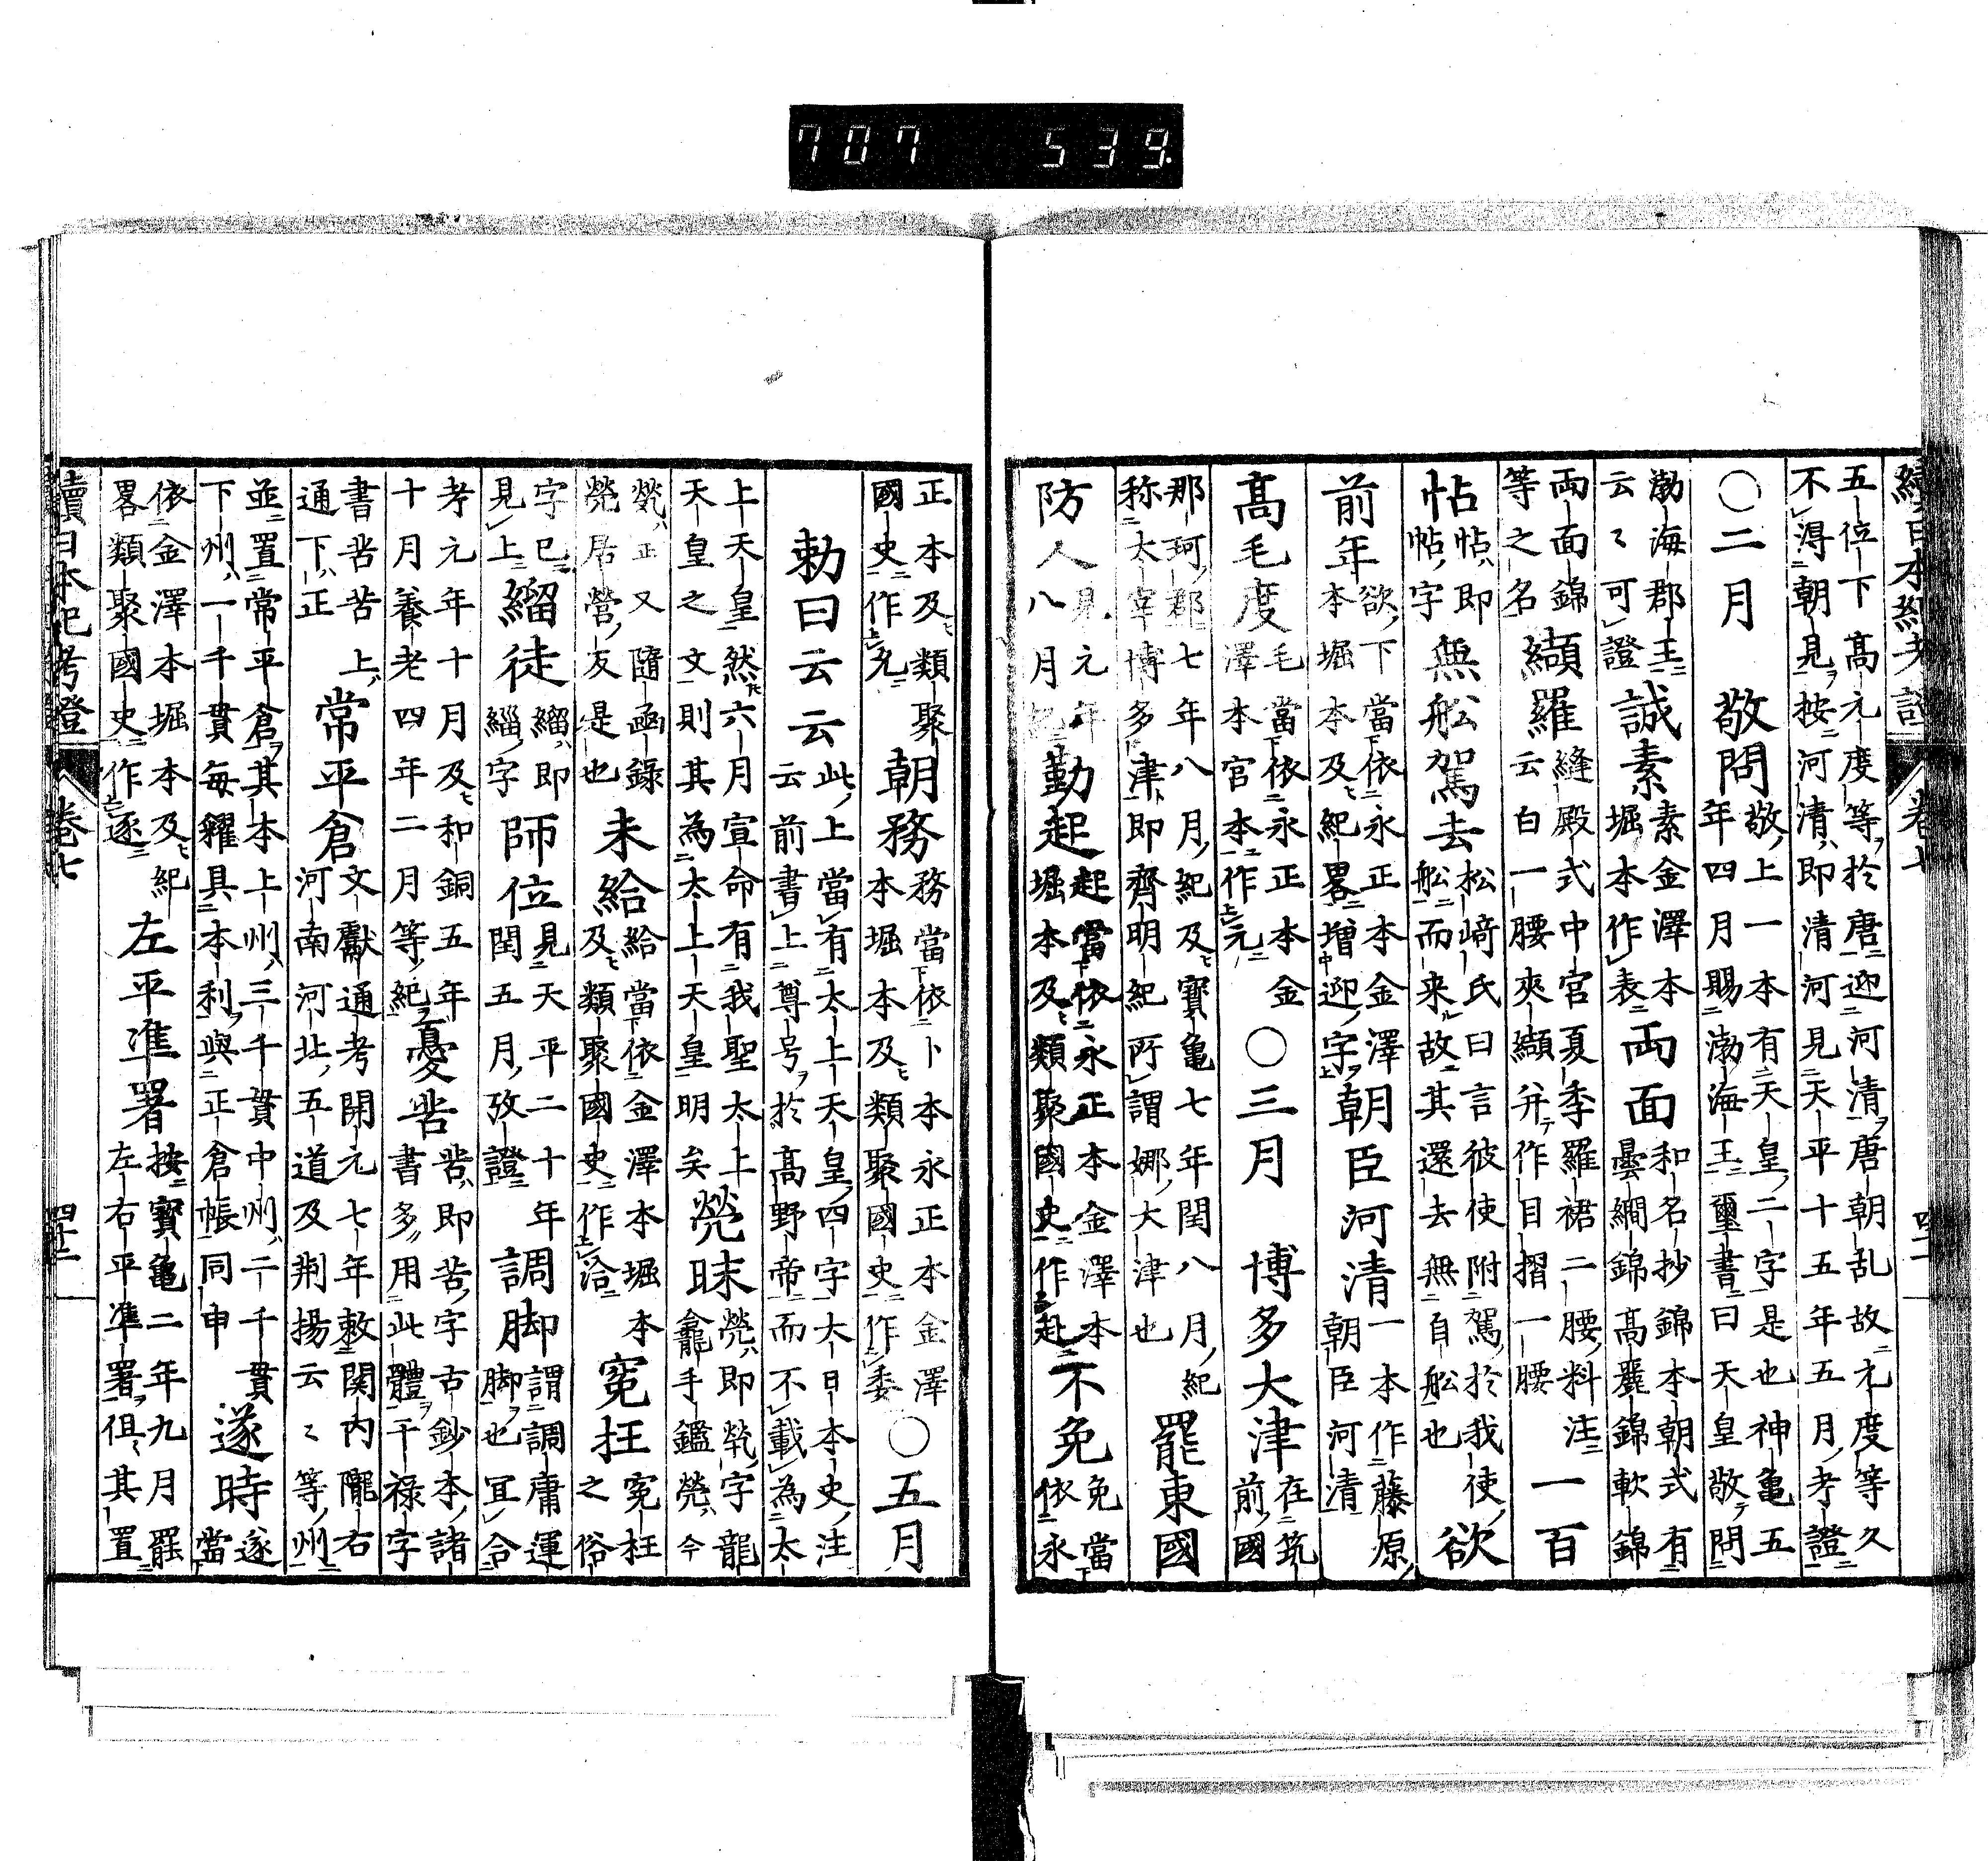 707 539.
續日本紀考證 卷七 四十二
五位下高元度等ヲ於唐ニ迎河清ヲ唐朝乱故ニ元度等久
不得朝見ヲ按河清ハ即清河見天平十五年五月ノ考證
○二月 敬問 敬上一本有天皇二字是也神亀五
年四月賜渤海王璽書曰天皇敬テ問
渤海郡王
云々可證 誠素 素金澤本
堀本作表 両面 和名抄錦本朝式有
曇繝錦高麗錦軟錦
両面錦
等之名 纈羅 縫殿式中宮夏季羅裙二腰料注
云白一腰夾纈并テ作目摺一腰 一百
帖 帖ハ即
帖ノ字 無船駕去 松﨑氏曰言彼使附駕於我使ノ
船而来ル故其還去無自船也 欲
前年 欲ノ下當依永正本金澤
本堀本及ヒ紀畧増迎ノ字ヲ 朝臣河清 一本作藤原ノ
朝臣河清
高毛度 毛當依永正本金
澤本宮本作元 ○三月 博多大津 在筑
前ノ國
那珂ノ郡七年八月ノ紀及ヒ寶亀七年閏八月ノ紀
称太宰博多ノ津ト即齊明紀所謂娜ノ大津也 罷東國
防人 見元年
八月紀 勤起 起當依永正本金澤本
堀本及ヒ類聚國史作赴 不免 免當
依永
正本及ヒ類聚
國史作充 朝務 務當依卜本永正本金澤
本堀本及ヒ類聚國史作委 ○五月
勅曰云云 此ノ上當有太上天皇ノ四字大日本史ノ注
云前書上尊号ヲ於高野帝而不載為太
上天皇然ヒ六月宣命有我聖太上
天皇之文則其為太上天皇明矣 㷀眛 㷀ハ即煢ノ字龍
龕手鑑㷀ハ今
煢ハ正又隨函錄
㷀居營ノ反是也 未給 給當依金澤本堀本
及ヒ類聚國史作洽 寃枉 寃枉
之俗
字已
見上 緇徒 緇ハ即
緇ノ字 師位 見天平二十年
閏五月ノ攷證 調脚 謂調庸運
脚ヲ也冝合
考元年十月及ヒ和銅五年
十月養老四年二月等ノ紀ヲ 憂苦 苦ハ即苦ノ字古鈔本ノ諸
書多ク用此體ヲ干禄字
書苦苦上ハ
通下ハ正 常平倉 文獻通考開元七年敕関内隴右
河南河北ノ五道及荆揚云々等ノ州
並置常平倉ヲ其本上州ハ三千貫中州ハ二千貫
下州ハ一千貫毎糴具本利ヲ與正倉帳同申 遂時 遂
當
依金澤本堀本及ヒ紀
畧類聚國史作逐 左平準署 按寶亀二年九月罷
左右平準署ヲ但其置
續日本紀考證 卷七 四十三